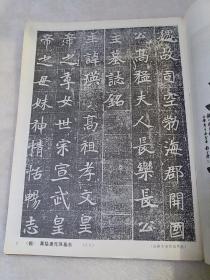 魏故司空勃海郡開國
公高猛夫人長樂長公
主墓誌銘
主諱瑛高祖孝文皇
帝之季女世宗宣武皇
帝之母妹神情恬暢志
高猛妻元瑛墓志